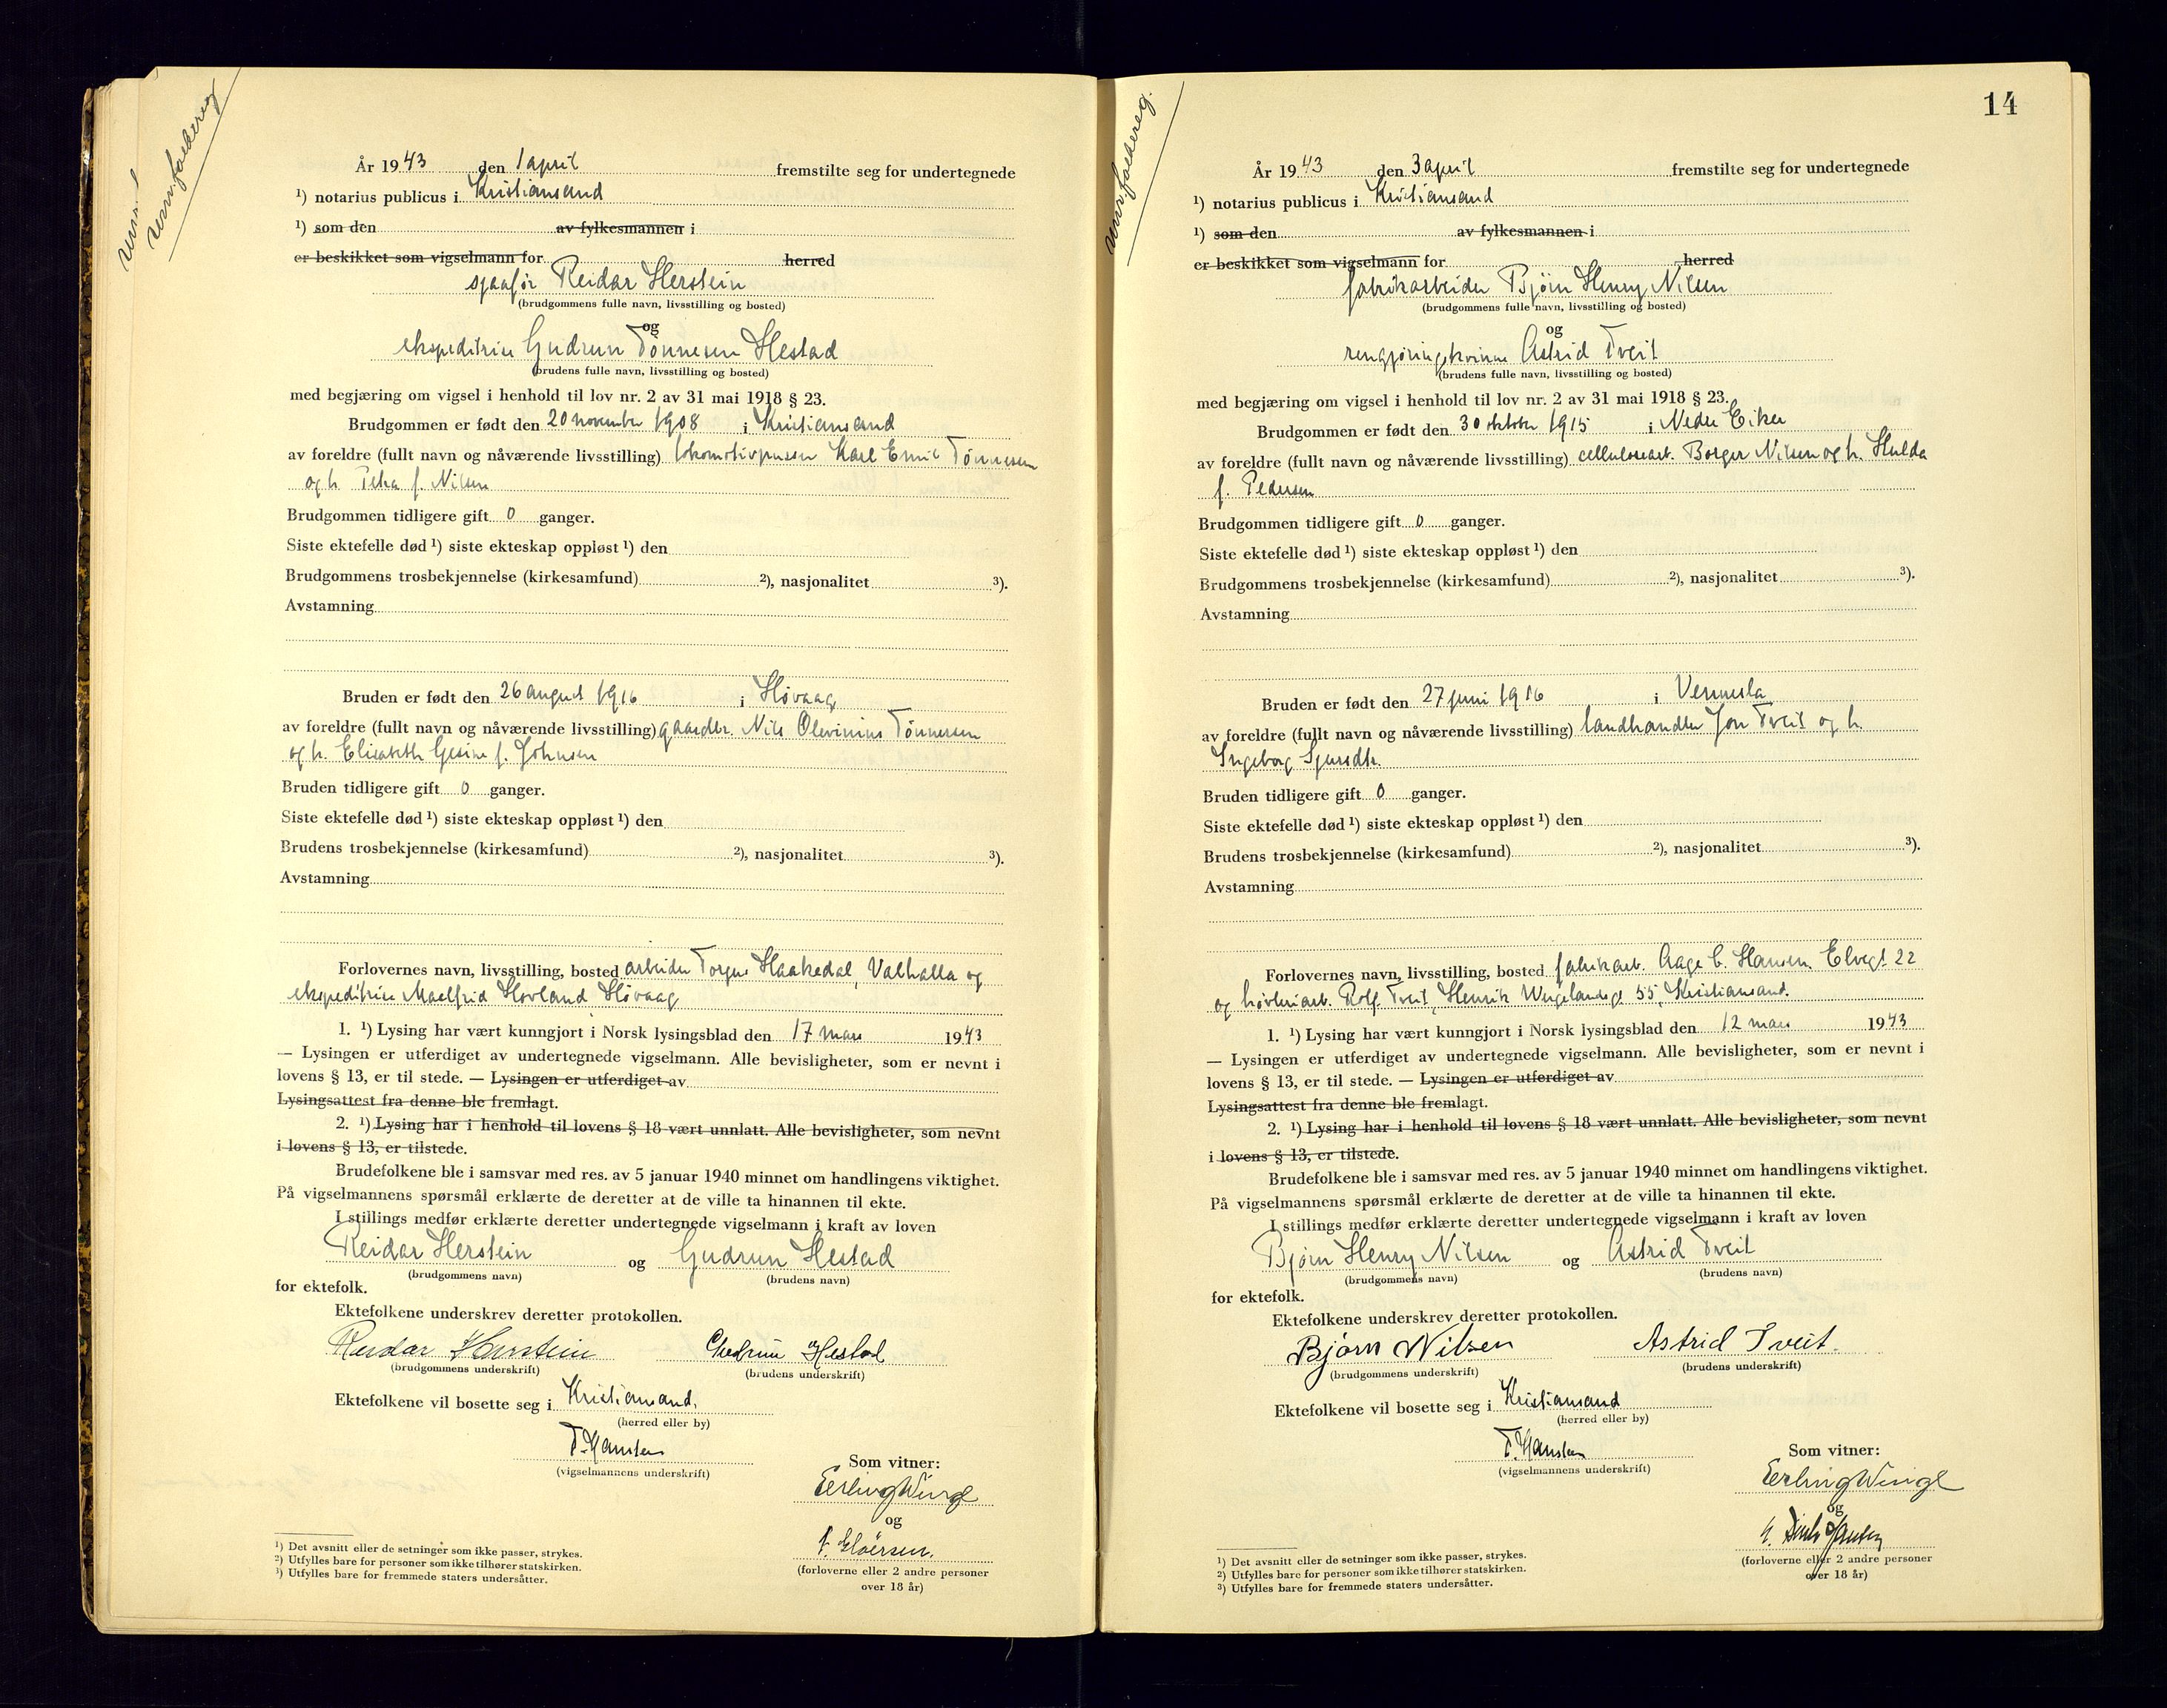 År 1943 den 1 april fremstilte seg for undertegnede
¹) notarius publicus i Kristiansand
¹) som den av fylkesmannen i
er beskikket som vigselmann for herred
sjaafør Reidar Herstein
(brudgommens fulle navn, livsstilling og bosted)
og
ekspeditrise Gudrun Tönnesen Hestad
(brudens fulle navn, livsstilling og bosted)
med begjæring om vigsel i henhold til lov nr. 2 av 31 mai 1918 § 23.
Brudgommen er født den 20 november 1908 i Kristiansand
av foreldre (fullt navn og nåværende livsstilling) lokomotivpusser Karl Emil Tönnesen
og h. Petra f. Nilsen
Brudgommen tidligere gift 0 ganger.
Siste ektefelle død ¹) siste ekteskap oppløst ¹) den
Brudgommens trosbekjennelse (kirkesamfund) ²), nasjonalitet ³).
Avstamning
Bruden er født den 26 august 1916 i Høvaag
av foreldre (fullt navn og nåværende livsstilling) gaardbr. Nils Olevinius Tönnesen
og h. Elisabeth Gesine f. Johnsen
Bruden tidligere gift 0 ganger.
Siste ektefelle død ¹) siste ekteskap oppløst ¹) den
Brudens trosbekjennelse (kirkesamfund) ²), nasjonalitet ³).
Avstamning
Forlovernes navn, livsstilling, bosted arbeider Torgus Haakedal, Valhalla og
ekspeditrise Maelfrid Hovland Høvaag
1. ¹) Lysing har vært kunngjort i Norsk lysingsblad den 17 mars 1943
— Lysingen er utferdiget av undertegnede vigselmann. Alle bevisligheter, som er nevnt i
lovens § 13, er til stede. — Lysingen er utferdiget av
Lysingsattest fra denne ble fremlagt.
2. ¹) Lysing har i henhold til lovens § 18 vært unnlatt. Alle bevisligheter, som nevnt
i lovens § 13, er tilstede.
Brudefolkene ble i samsvar med res. av 5 januar 1940 minnet om handlingens viktighet.
På vigselmannens spørsmål erklærte de deretter at de ville ta hinannen til ekte.
I stillings medfør erklærte deretter undertegnede vigselmann i kraft av loven
Reidar Herstein og Gudrun Hestad
(brudgommens navn) (brudens navn)
for ektefolk.
Ektefolkene underskrev deretter protokollen.
Reidar Herstein Gudrun Hestad
(brudgommens underskrift) (brudens underskrift)
Ektefolkene vil bosette seg i Kristiansand.
(herred eller by)
T. Hansten
(vigselmannens underskrift)
Som vitner:
Erling Winge
og
(forloverne eller 2 andre personer
over 18 år)
¹) Det avsnitt eller de setninger som ikke passer, strykes.
²) Utfylles bare for personer som ikke tilhører statskirken.
³) Utfylles bare for fremmede staters undersåtter.
14
År 1943 den 3 april fremstilte seg for undertegnede
¹) notarius publicus i Kristiansand
¹) som den av fylkesmannen i
er beskikket som vigselmann for herred
fabrikarbeider Bjørn Henry Nilsen
(brudgommens fulle navn, livsstilling og bosted)
og
rengjøringskvinne Astrid Tveit
(brudens fulle navn, livsstilling og bosted)
med begjæring om vigsel i henhold til lov nr. 2 av 31 mai 1918 § 23.
Brudgommen er født den 30 oktober 1915 i Nedre Eiker
av foreldre (fullt navn og nåværende livsstilling) cellulosearb. Borger Nilsen og h. Hulda
f. Pedersen
Brudgommen tidligere gift 0 ganger.
Siste ektefelle død ¹) siste ekteskap oppløst ¹) den
Brudgommens trosbekjennelse (kirkesamfund) ²), nasjonalitet ³).
Avstamning
Bruden er født den 27 juni 1916 i Vennesla
av foreldre (fullt navn og nåværende livsstilling) landhandler Jon Tveit og h.
Ingeborg Sjursdtr.
Bruden tidligere gift 0 ganger.
Siste ektefelle død ¹) siste ekteskap oppløst ¹) den
Brudens trosbekjennelse (kirkesamfund) ²), nasjonalitet ³).
Avstamning
Forlovernes navn, livsstilling, bosted fabrikarb. Aage C. Hansen Elvegt 22
og høvleriarb. Rolf Tveit, Henrik Wergelandsgt 55, Kristiansand.
1. ¹) Lysing har vært kunngjort i Norsk lysingsblad den 12 mars 1943
— Lysingen er utferdiget av undertegnede vigselmann. Alle bevisligheter, som er nevnt i
lovens § 13, er til stede. — Lysingen er utferdiget av
Lysingsattest fra denne ble fremlagt.
2. ¹) Lysing har i henhold til lovens § 18 vært unnlatt. Alle bevisligheter, som nevnt
i lovens § 13, er tilstede.
Brudefolkene ble i samsvar med res. av 5 januar 1940 minnet om handlingens viktighet.
På vigselmannens spørsmål erklærte de deretter at de ville ta hinannen til ekte.
I stillings medfør erklærte deretter undertegnede vigselmann i kraft av loven
Bjørn Henry Nilsen og Astrid Tveit
(brudgommens navn) (brudens navn)
for ektefolk.
Ektefolkene underskrev deretter protokollen.
Bjørn Nilsen Astrid Tveit.
(brudgommens underskrift) (brudens underskrift)
Ektefolkene vil bosette seg i Kristiansand
(herred eller by)
T. Hansten
(vigselmannens underskrift)
Som vitner:
Erling Winge
og
(forloverne eller 2 andre personer
over 18 år)
¹) Det avsnitt eller de setninger som ikke passer, strykes.
²) Utfylles bare for personer som ikke tilhører statskirken.
³) Utfylles bare for fremmede staters undersåtter.